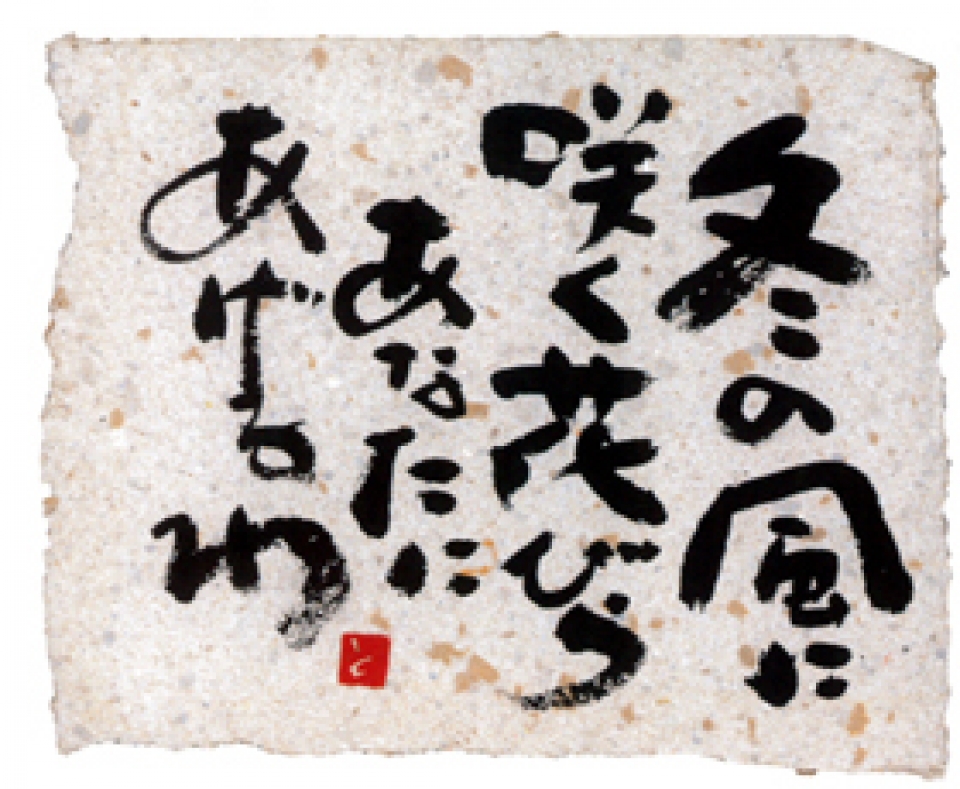 冬の風に
咲く花びら
あなたに
あげるわ
と